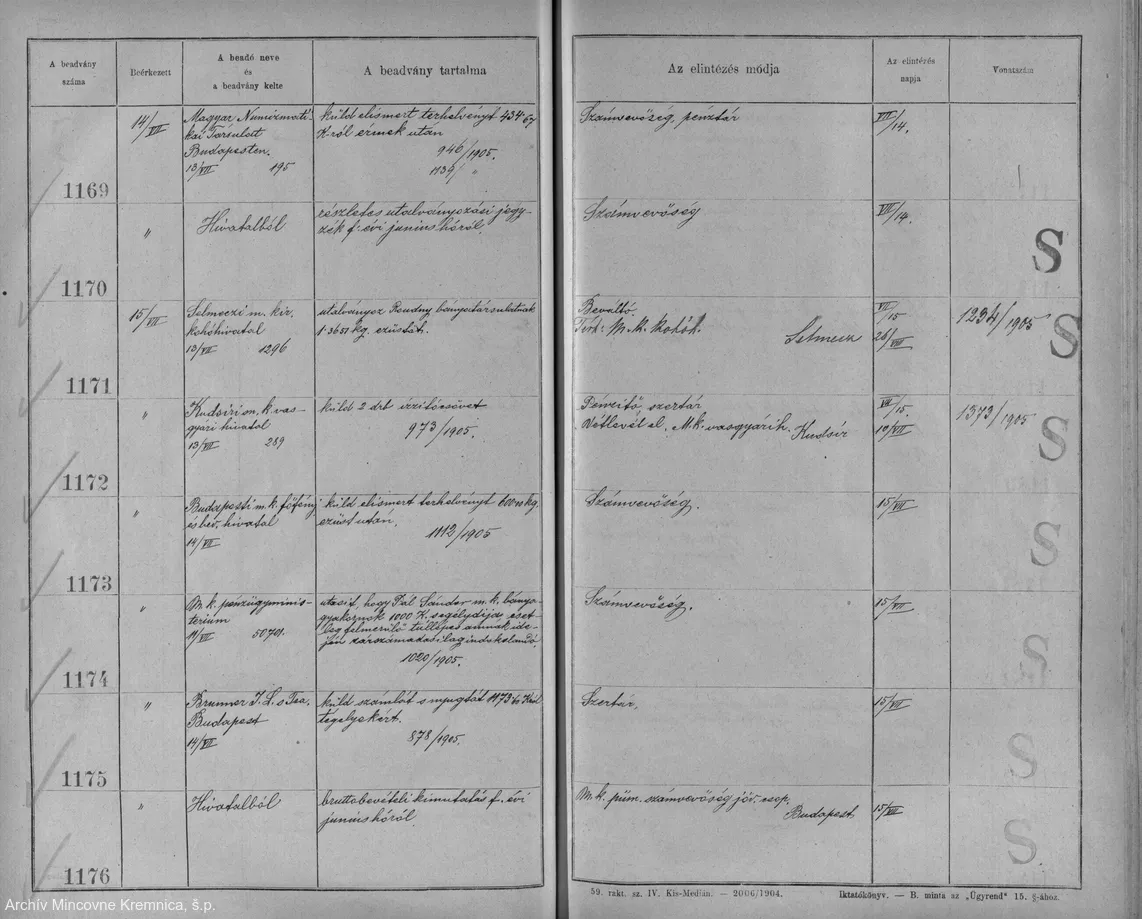 A beadvány száma
Beérkezett
A beadó neve és a beadvány kelte
A beadvány tartalma
Az elintézés módja
Az elintézés napja
Vonatszám
1169
14/VII
Magyar Numizmati-
kai Társulat
Budapesten.
13/VII 195
küld elismert terhelvényt 434 67
K-ról érmek után
946/1905.
1139/ "
Számvevőség, pénztár
VII/14.
1170
"
Hivatalból
részletes utalványozási jegy-
zék f. évi junius hóról.
Számvevőség
VII/14.
S
1171
15/VII
Selmeczi m. kir.
kohóhivatal
13/VII 1296
utalványoz Roudny bányatársulatnak
1·3651 kg. ezüstöt.
Beváltó.
M. k. Kohóh.
Selmecz
VII/15
26/VIII
1234/1905
S
1172
"
Kudsiri m. k. vas-
gyári hivatal
13/VII 289
küld 2 drt
973/1905.
szertár
Vétlevél el. M. k. vasgyárih. Kudsir
VII/15.
1373/1905
S
1173
"
Budapesti m. k. főfémj.
és bev. hivatal
14/VII
küld elismert terhelvényt kg.
ezüst után.
1112/1905
Számvevőség.
15/VII
S
1174
"
M. k. pénzügyminis-
terium
11/VII 50701.
utasit, hogy Pál Sándor m. k. bánya-
gyakornok 1000 K. segélydija eset-
leg felmerülő túllépés annak ide-
jén zárszámadásilag indokolandó.
1020/1905.
Számvevőség.
15/VII
S
1175
"
Brunner J. L. s Tsa.
Budapest
14/VII
küld számlát s nyugtát 1173
tégelyekért.
878/1905.
Szertár.
15/VII
S
1176
"
Hivatalból
brutto bevételi kimutatás f. évi
junius hóról.
M. k. püm. számvevőség jöv. csop.
Budapest
15/VII
S
59. rakt. sz. IV. Kis-Medián. — 2006/1904.
Iktatókönyv. — B. minta az „Ügyrend" 15. §-ához.
Archív Mincovne Kremnica, š.p.